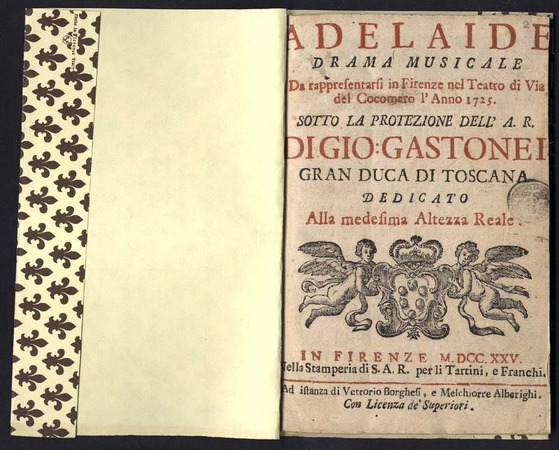 2
ADELAIDE
DRAMA MUSICALE
Da rappresentarsi in Firenze nel Teatro di Via
del Cocomero l'Anno 1725.
SOTTO LA PROTEZIONE DELL' A. R.
DI GIO: GASTONE I.
GRAN DUCA DI TOSCANA
DEDICATO
Alla medesima Altezza Reale.
IN FIRENZE M.DCC.XXV.
Nella Stamperia di S. A. R. per li Tartini, e Franchi.
Ad istanza di Vettorio Borghesi, e Melchiorre Alberighi.
Con Licenza de' Superiori.